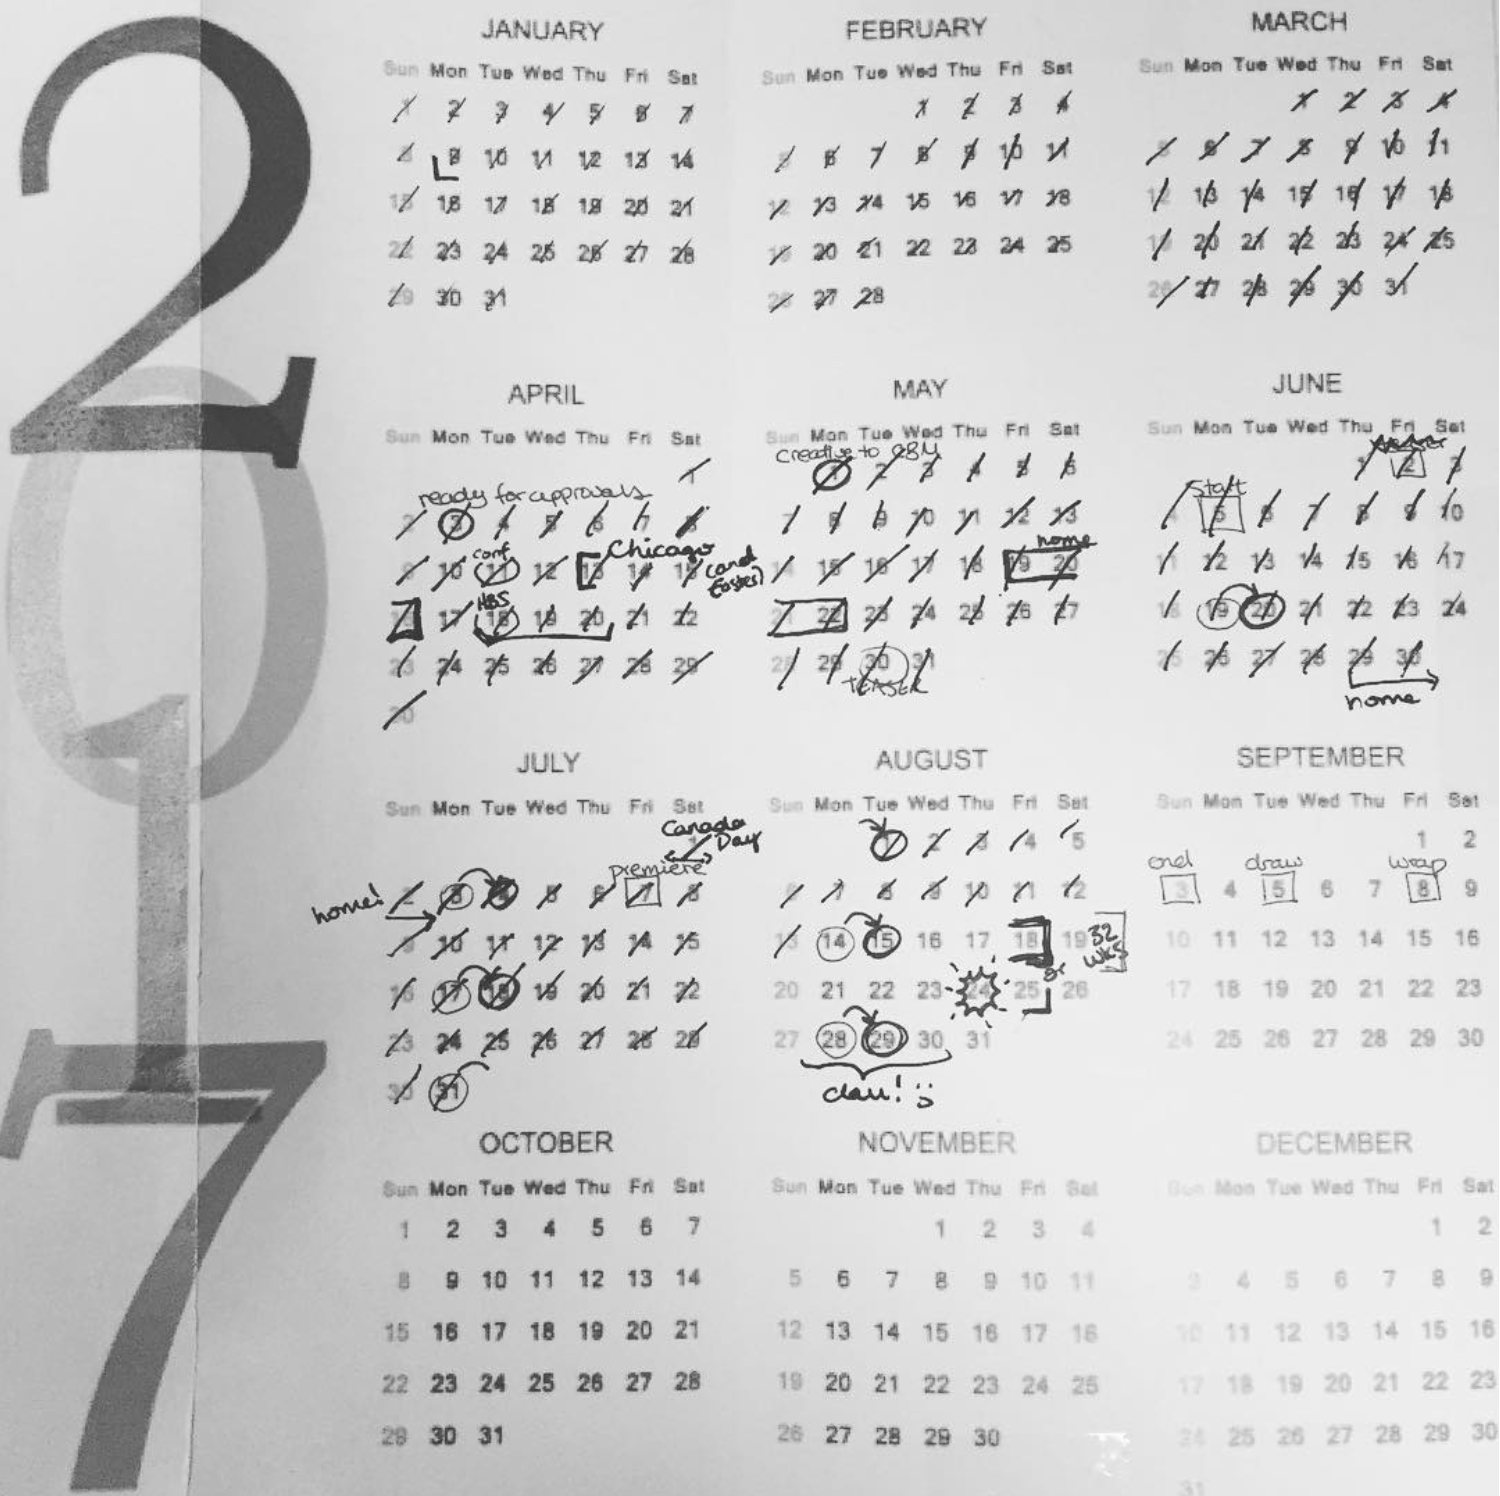 2017
JANUARY
Sun Mon Tue Wed Thu Fri Sat
1 2 3 4 5 6 7
8 9 10 11 12 13 14
15 16 17 18 19 20 21
22 23 24 25 26 27 28
29 30 31
FEBRUARY
Sun Mon Tue Wed Thu Fri Sat
1 2 3 4
5 6 7 8 9 10 11
12 13 14 15 16 17 18
19 20 21 22 23 24 25
26 27 28
MARCH
Sun Mon Tue Wed Thu Fri Sat
1 2 3 4
5 6 7 8 9 10 11
12 13 14 15 16 17 18
19 20 21 22 23 24 25
26 27 28 29 30 31
APRIL
Sun Mon Tue Wed Thu Fri Sat
1
ready for approvals
2 3 4 5 6 7 8
conf Chicago
9 10 11 12 13 14 15 (and Easter)
HBS
16 17 18 19 20 21 22
23 24 25 26 27 28 29
30
MAY
Sun Mon Tue Wed Thu Fri Sat
creative to
1 2 3 4 5 6
7 8 9 10 11 12 13
home
14 15 16 17 18 19 20
21 22 23 24 25 26 27
28 29 30 31
TEASER
JUNE
Sun Mon Tue Wed Thu Fri Sat
1 2 3
Start
4 5 6 7 8 9 10
11 12 13 14 15 16 17
18 19 20 21 22 23 24
25 26 27 28 29 30
home
JULY
Sun Mon Tue Wed Thu Fri Sat
Canada Day
1
premiere
home! 2 3 4 5 6 7 8
9 10 11 12 13 14 15
16 17 18 19 20 21 22
23 24 25 26 27 28 29
30 31
AUGUST
Sun Mon Tue Wed Thu Fri Sat
1 2 3 4 5
6 7 8 9 10 11 12
13 14 15 16 17 18 19 32 wks
or
20 21 22 23 24 25 26
27 28 29 30 31
SEPTEMBER
Sun Mon Tue Wed Thu Fri Sat
1 2
end draw wrap
3 4 5 6 7 8 9
10 11 12 13 14 15 16
17 18 19 20 21 22 23
24 25 26 27 28 29 30
OCTOBER
Sun Mon Tue Wed Thu Fri Sat
1 2 3 4 5 6 7
8 9 10 11 12 13 14
15 16 17 18 19 20 21
22 23 24 25 26 27 28
29 30 31
NOVEMBER
Sun Mon Tue Wed Thu Fri Sat
1 2 3 4
5 6 7 8 9 10 11
12 13 14 15 16 17 18
19 20 21 22 23 24 25
26 27 28 29 30
DECEMBER
Sun Mon Tue Wed Thu Fri Sat
1 2
3 4 5 6 7 8 9
10 11 12 13 14 15 16
17 18 19 20 21 22 23
24 25 26 27 28 29 30
31